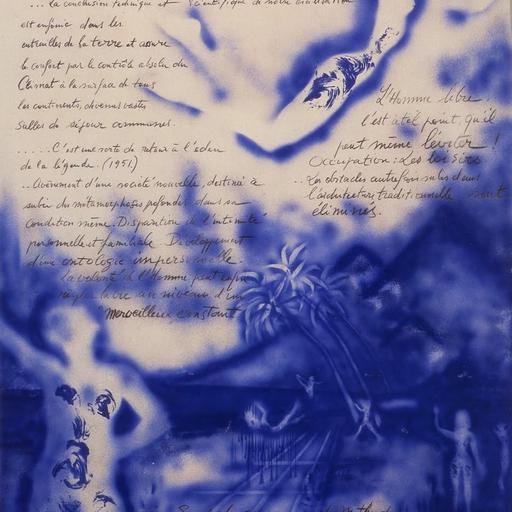 ... la conclusion technique et scientifique de notre civilisation
est enfouie dans les
entrailles de la terre et assure
le confort par le contrôle absolu du
Climat à la surface de tous
les continents, devenus vastes
Salles de séjour communes.
..... C'est une sorte de retour à l'éden
de la légende. (1951)
... Avènement d'une société nouvelle, destinée à
subir des métamorphoses profondes dans sa
condition même. Disparition de l'intimité
personnelle et familiale. Développement
d'une ontologie impersonnelle.
la volonté de l'Homme peut enfin
régler la vie au niveau d'un
merveilleux constant
L'Homme libre.
l'est à tel point, qu'il
peut même léviter !
Occupation : Les loisirs
... Les obstacles autrefois subis dans
l'architecture traditionnelle sont
éliminés.